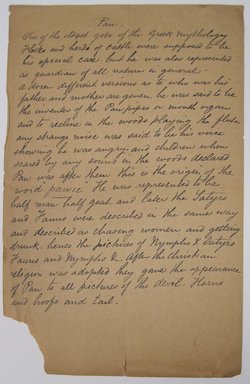 Pan.
One of the oldest gods of the Greek mythology
Flocks and herds of cattle were supposed to be
his special care but he was also represented
as guardian of all nature in general.
A dozen different versions as to who was his
father and mother are given he was said to be
the inventor of the Pan pipes or mouth organ
and to recline in the woods playing the flute
any strange noise was said to be his voice
showing he was angry and children when
scared by any sound in the woods declared
Pan was after them this is the origin of the
word panic. He was represented to be
half man half goat and later the Satyrs
and Fauns were described in the same way
and described as chasing women and getting
drunk. hence the pictures of Nymphs & Satyrs
Fauns and Nymphs &c. After the Christian
religion was adopted they gave the appearance
of Pan to all pictures of the devil. Horns
and hoofs and tail.